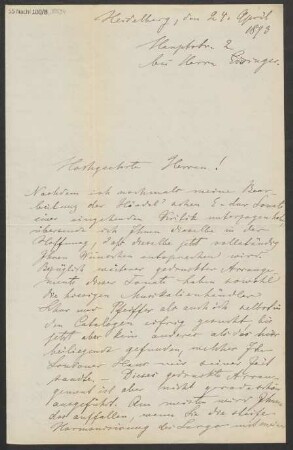 Heidelberg, den 24. April
1893
Hauptstr. 2
bei Herrn
Hochgeehrte Herren!
Nachdem ich nochmals meine Bear-
beitung der Händel'schen G-dur Sonate
einer eingehenden Kritik unterzogen habe
übersende ich Ihnen dieselbe in der
Hoffnung, daß dieselbe jetzt vollständig
Ihren Wünschen entsprechen wird.
Bezüglich weiterer gedruckter Arrange-
ments dieser Sonate haben sowohl
die hiesigen Musikalienhändler
Pfeiffer als auch ich selbst in
den Catalogen eifrig gesucht bis
jetzt aber kein anderes als das hier
beiliegende gefunden, welches Ihr
Londoner Haus mir seiner Zeit
sandte. - Dieses gedruckte Arran-
gement ist aber nicht grade schön
ausgeführt. Am meisten wird Ihnen
das auffallen, wenn Sie die steife
Harmonisirung des Largo mit meiner